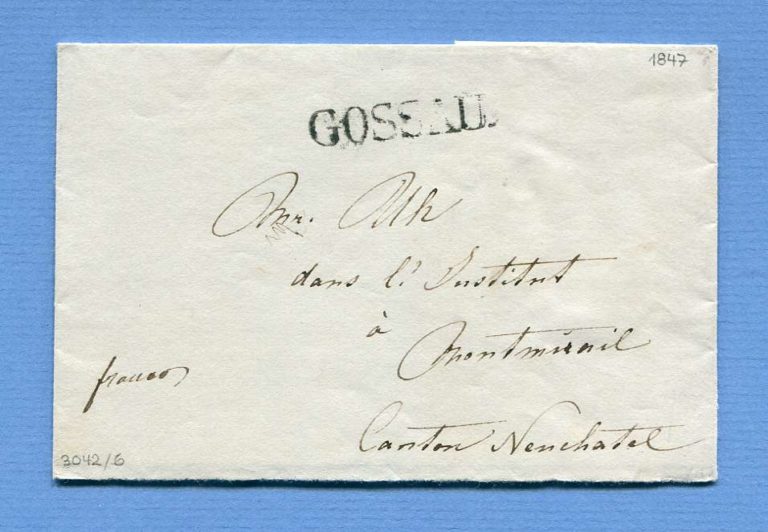 1847
GOSSAU.
Mr. Uth
dans l'Institut
à
Montmirail
franco
Canton Neuchatel
3042/6